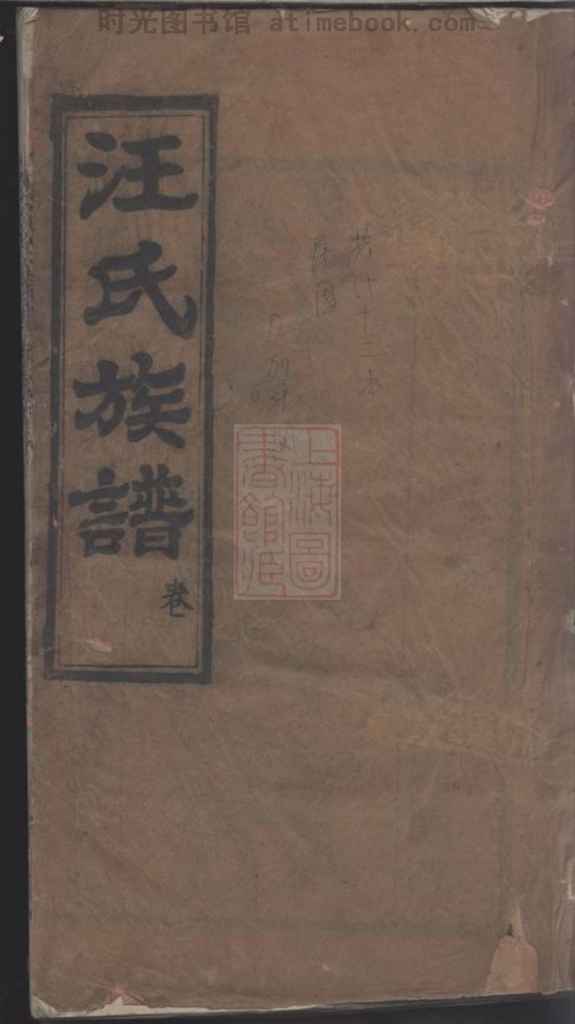 时光图书馆 atimebook.com
汪氏族譜
卷
共计十三本
上海圖
書館藏